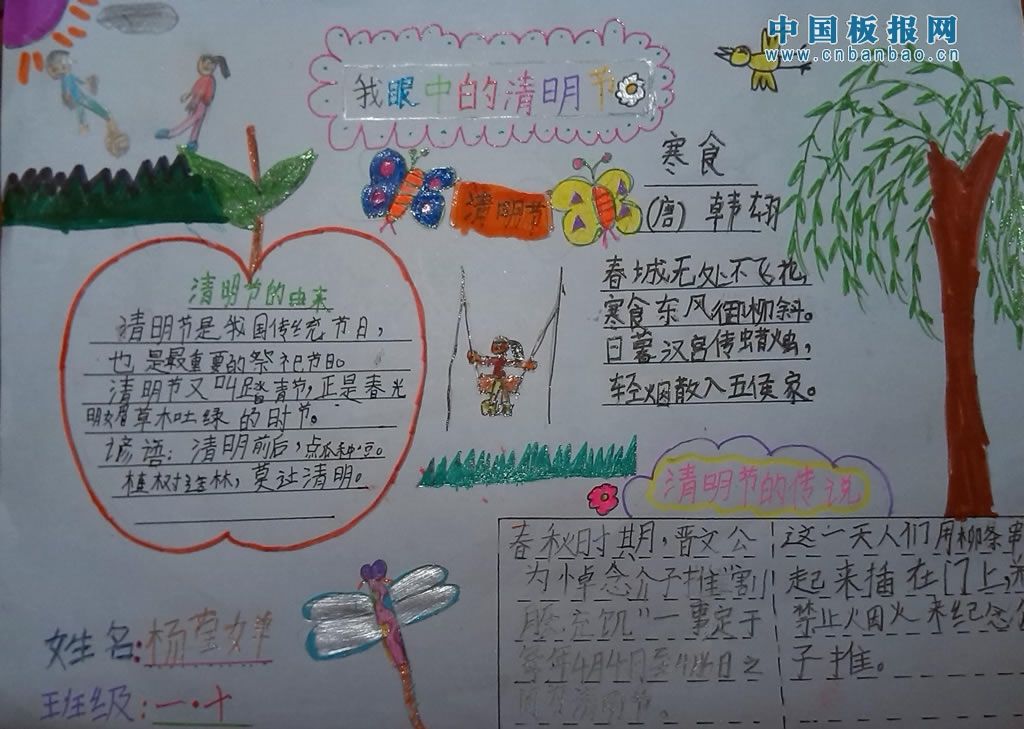 中国板报网
www.cnbanbao.cn
我眼中的清明节
清明节
寒食
(唐) 韩翃
春城无处不飞花,
寒食东风御柳斜。
日暮汉宫传蜡烛,
轻烟散入五侯家。
清明节的由来
清明节是我国传统节日,
也是最重要的祭祀节日。
清明节又叫踏青节,正是春光
明媚草木吐绿的时节。
谚语:清明前后,点瓜种豆。
植树造林,莫让清明。
清明节的传说
春秋时期,晋文公
为悼念介子推“割
股充饥”一事定于
每年4月4日至4月6日之
清明节。
这一天人们用柳条串
起来插在门上,
禁止火因火来纪念
子推。
姓名:杨莹婵
班级:一·十